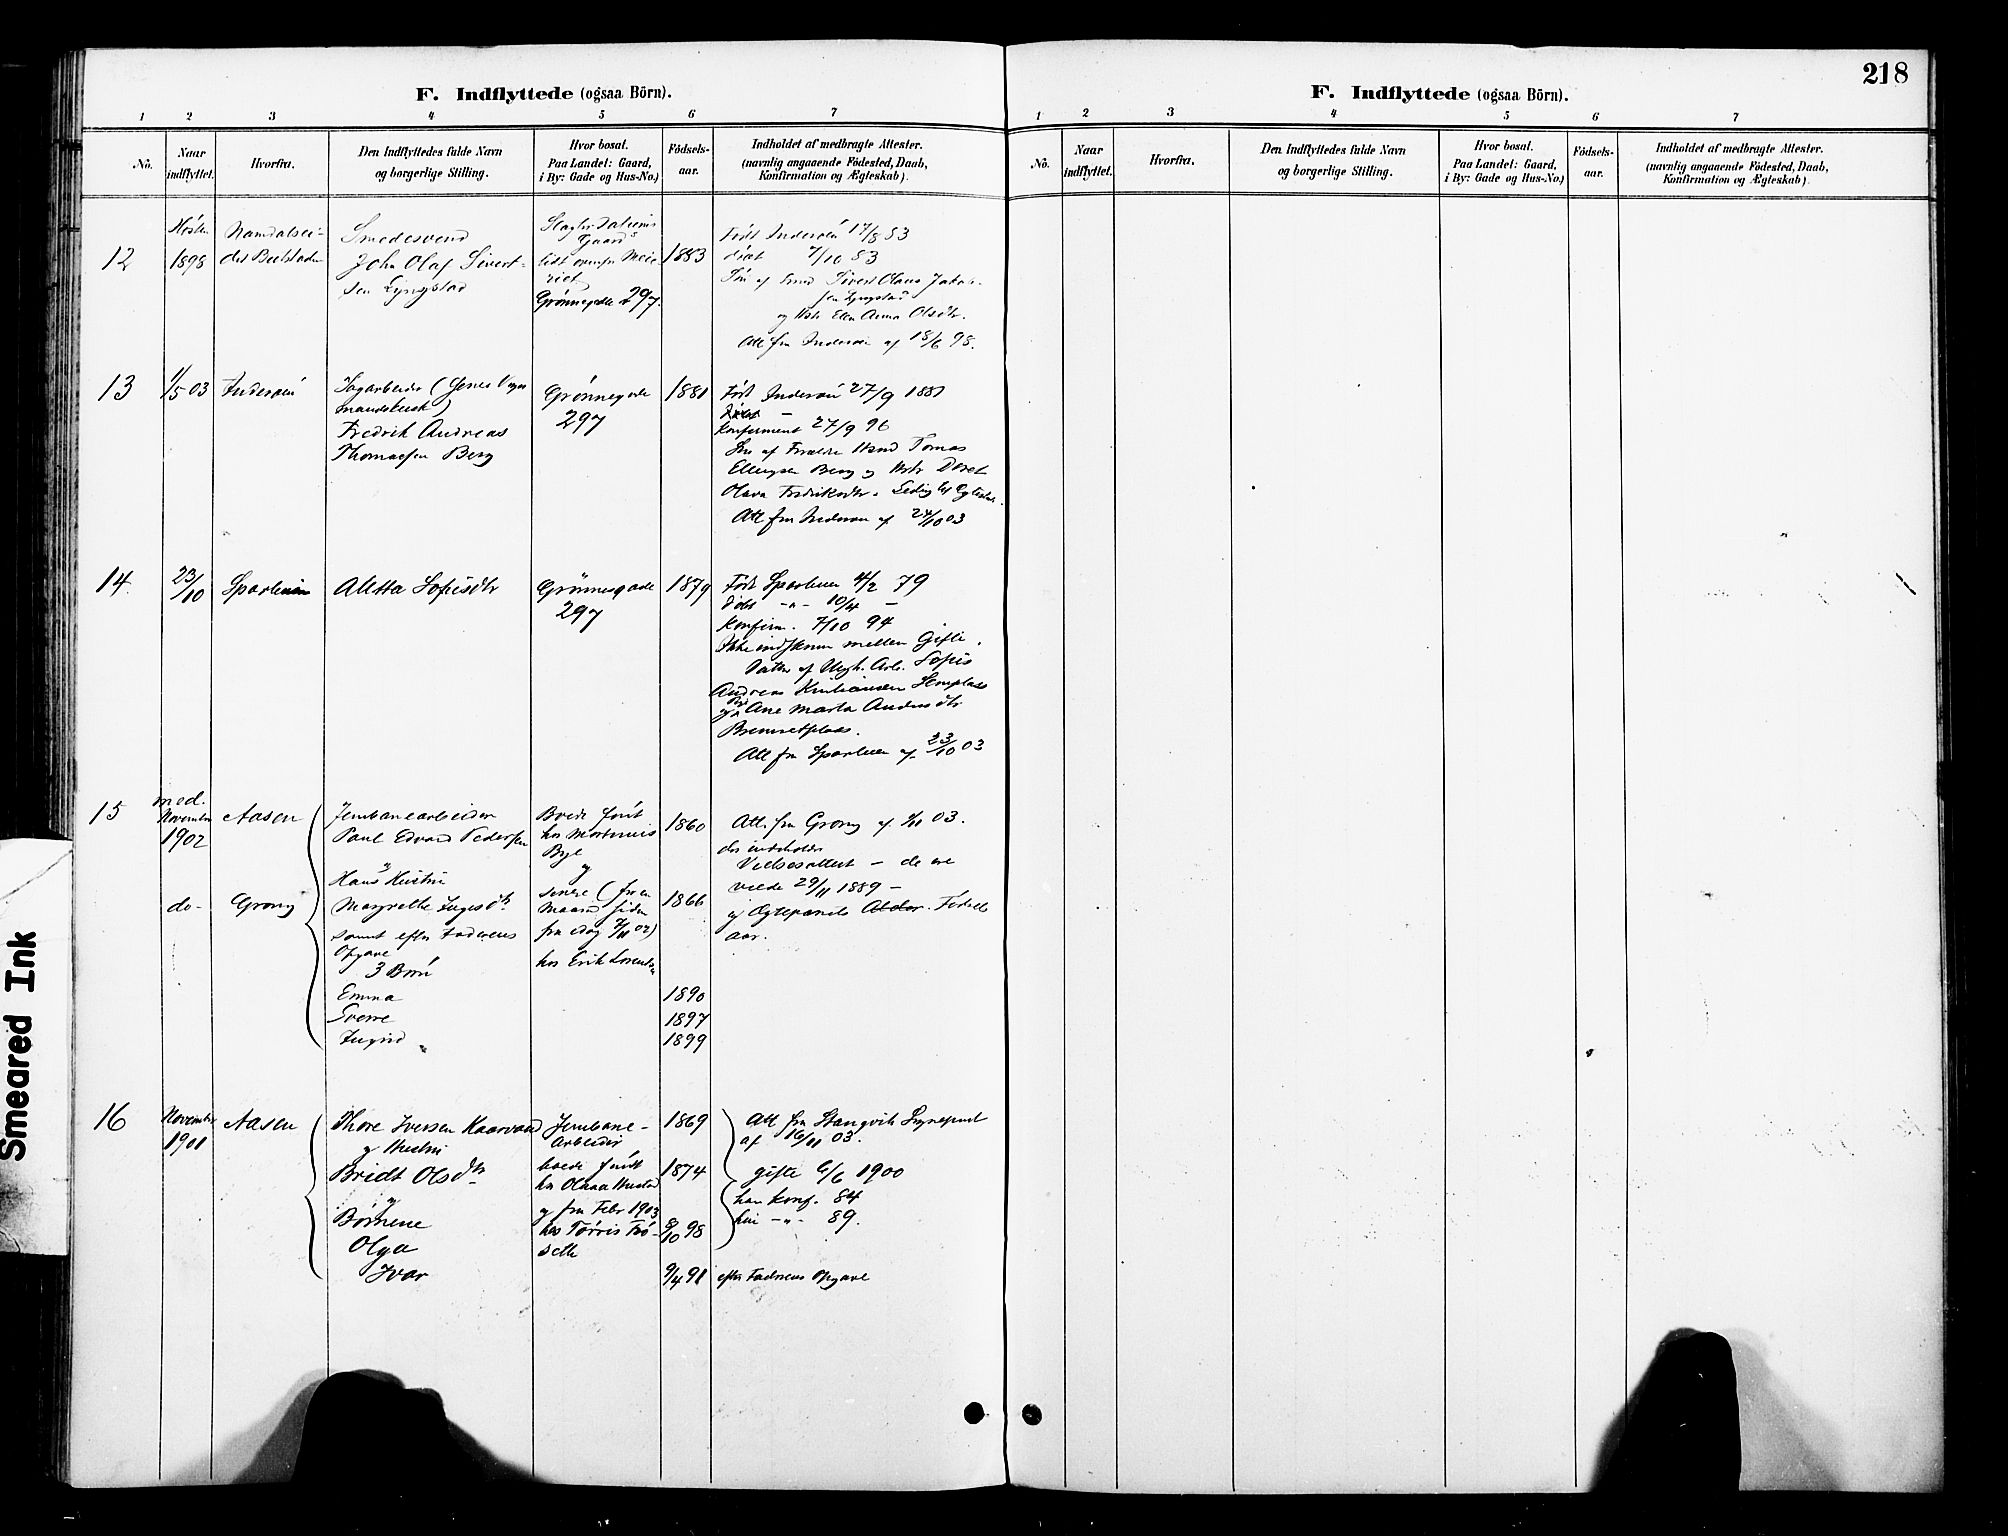 218
F. Indflyttede (ogsaa Börn).
1 2 3 4 5 6 7
No.
Naar indflyttet.
Hvorfra.
Den Indflyttedes fulde Navn
og borgerlige Stilling.
Hvor bosat.
Paa Landet: Gaard,
i By: Gade og Hus-No.)
Födsels-
aar.
Indholdet af medbragte Attester.
(navnlig angaaende Födested, Daab,
Konfirmation og Ægteskab).
12
Hösten
1898
Namdalsei-
det
Smedesvend
John Olaf Sivert-
sen Lyngstad
Gaard
lidt ovenfor Meie-
riet
Grønnegade 297.
1883
Født Inderøen 17/8 83
døbt 7/10 83
Søn af Smed Sivert Olaus Jakob-
sen Lyngstad
og Hstr Ellen Anna Olsdtr.
Att. fra Inderøen af 18/6 98.
13
1/5 03
Inderøen
Sagarbeider
Fredrik Andreas
Thomassen Berg
Grønnegade
297
1881
Født Inderøen 27/9 1881
Døbt -
Konfirmeret 27/9 96
Søn af Hsmd Tomas
Ellingsen Berg og Hstr Doret
Olava Fredriksdtr. Ledig til Ægteskab.
Att. fra Inderøen af 24/10 03
14.
23/10
Sparbuen
Aletta Sofiesdtr
Grönnegade
297
1879
Født Sparbuen 4/2 79
Døbt -"- 10/4 -
Konfirm. 7/10 94
Ikke indskreven mellem Gifte.
Datter af Ungk. Arb. Sofus
Andreas Kristiansen
og Pge Ane Marta Andersdtr
Bremsetplads.
Att. fra Sparbuen af 23/10 03
15
med.
November
1902
Aasen
Jernbanearbeider
Paul Edvard Pedersen
Boede først
hos Mortinus
Bye
og
1860
Att. fra Grong af 9/11 03.
der indeholder
Vielsesattest - de ere
viede 29/11 1889 -
og Ægteparrets Alder Fødsels
aar.
do-
Grong
og
Hans Hustru
Margrethe Ingesdtr
samt efter Faderens
Opgave
3 Børn
senere (for en
Maaned siden
fra idag 9/11 02)
hos Erik Lorentsen
1866
Emma 1890
Sverre 1897
Ingrid 1899
16
November
1901
Aasen
Thore Iversen Kaarvand
og Hustru
Bridt Olsdtr
og
Børnene
Olga
Ivar
Jernbane-
arbeider
boede først
hos Olaus Hustad
og fra Febr 1903
hos Tørris Frö-
sette
1869
1874
8/10 98
9/4 91
Att. fra Stangvik Sognepræst
af 16/11 03.
gifte 6/6 1900
han konf. 84
hun -"- 89.
efter Faderens Opgave
F. Indflyttede (ogsaa Börn).
1 2 3 4 5 6 7
No.
Naar indflyttet.
Hvorfra.
Den Indflyttedes fulde Navn
og borgerlige Stilling.
Hvor bosat.
Paa Landet: Gaard,
i By: Gade og Hus-No.)
Födsels-
aar.
Indholdet af medbragte Attester.
(navnlig angaaende Födested, Daab,
Konfirmation og Ægteskab).
Smeared Ink